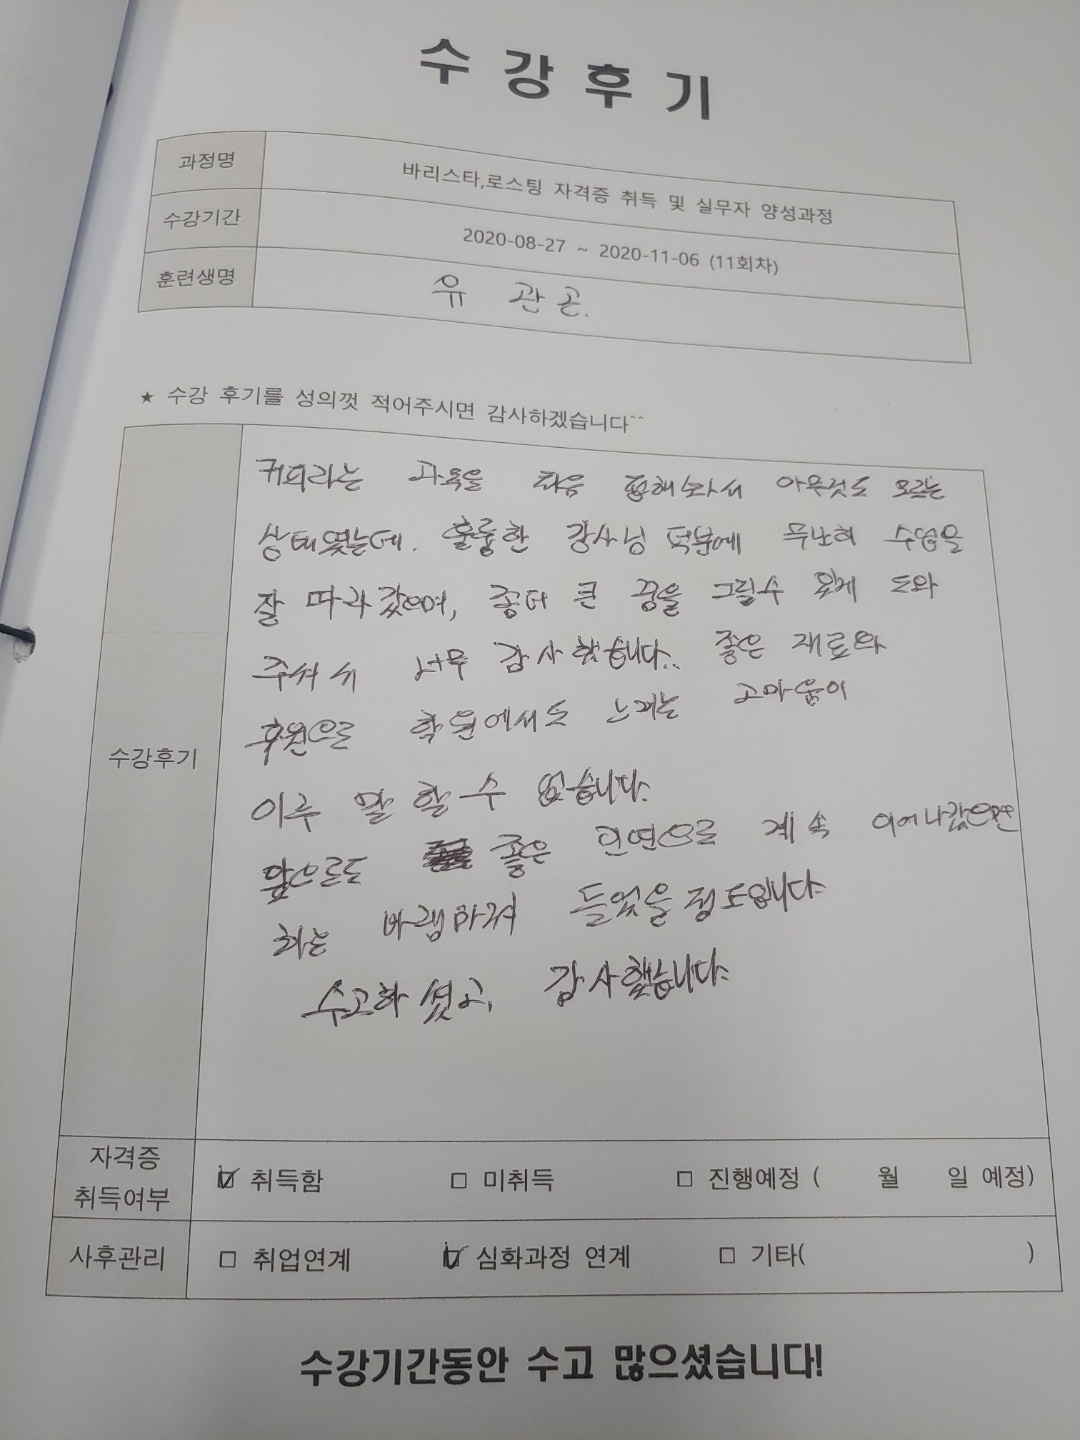 수강후기
과정명 바리스타,로스팅 자격증 취득 및 실무자 양성과정
수강기간 2020-08-27 ~ 2020-11-06 (11회차)
훈련생명 유 관곤.
★ 수강 후기를 성의껏 적어주시면 감사하겠습니다^^
커피라는 과목을 처음 접해봐서 아무것도 모르는
상태였는데. 훌륭한 강사님 덕분에 무난히 수업을
잘 따라갔으며, 좀더 큰 꿈을 그릴수 있게 도와
주셔서 너무 감사했습니다.. 좋은 재료와
후원으로 학원에서도 느끼는 고마움이
이루 말 할 수 없습니다.
앞으로도 좋은 인연으로 계속 이어나갔으면
하는 바램마저 들었을 정도입니다.
수고하셨고, 감사했습니다.
수강후기
자격증 취득여부 ☑ 취득함 □ 미취득 □ 진행예정 ( 월 일 예정)
사후관리 □ 취업연계 ☑ 심화과정 연계 □ 기타( )
수강기간동안 수고 많으셨습니다!